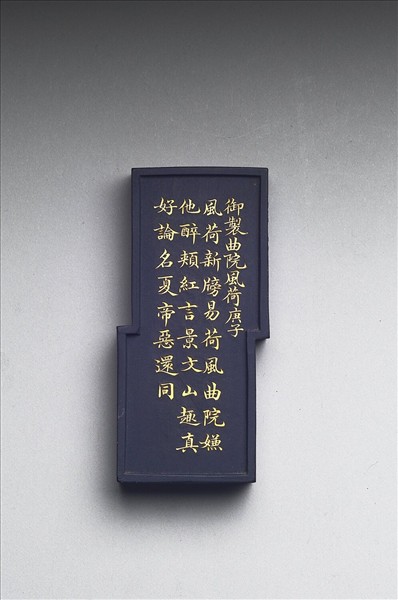 御製曲院風荷庚子
風荷新牓易荷風曲院嫌
他醉頰紅言景文山趣真
好論名夏帝惡還同